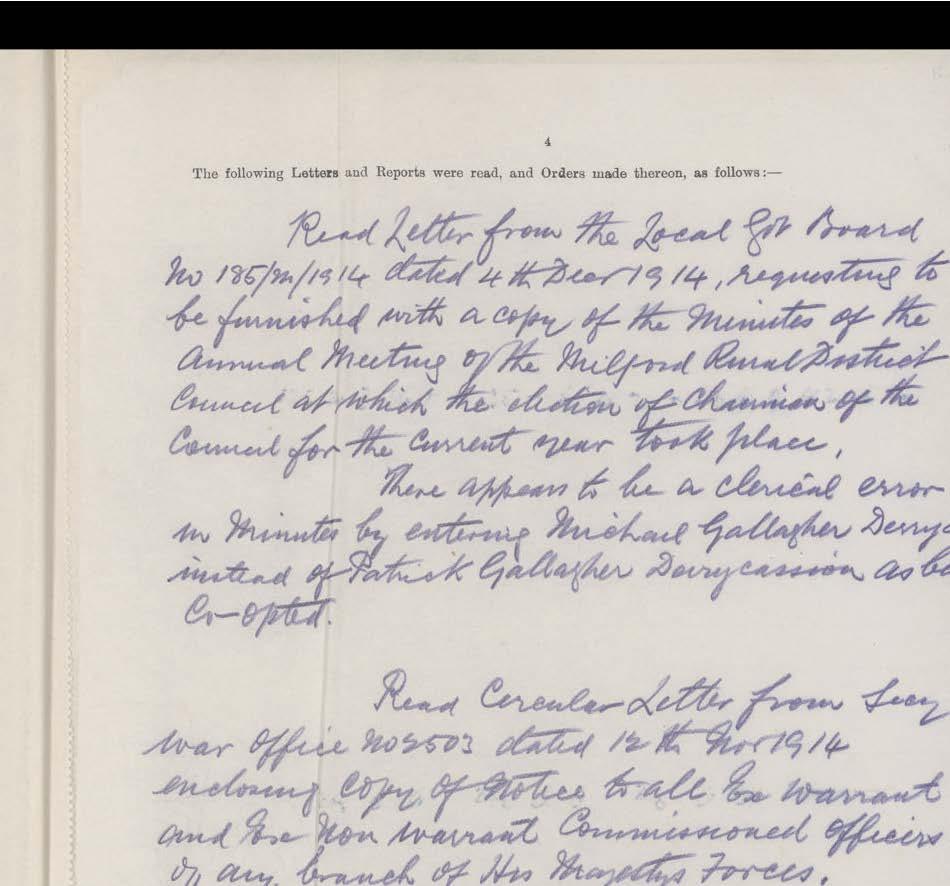 4
The following Letters and Reports were read, and Orders made thereon, as follows:—
Read Letter from the Local Govt Board
No 185/M/1914 dated 4th Decr 1914, requesting to
be furnished with a copy of the Minutes of the
Annual Meeting of the Milford Rural District
Council at which the election of Chairman of the
Council for the Current year took place,
There appears to be a clerical error
in Minutes by entering Michael Gallagher
instead of Patrick Gallagher Derrycassion as
Co-opted.
Read Circular Letter from Secy
War Office dated 12th Nov 1914
enclosing Copy of Notice to all Ex Warrant
and Ex Non Warrant Commissioned Officers
of any branch of His Majestys Forces.